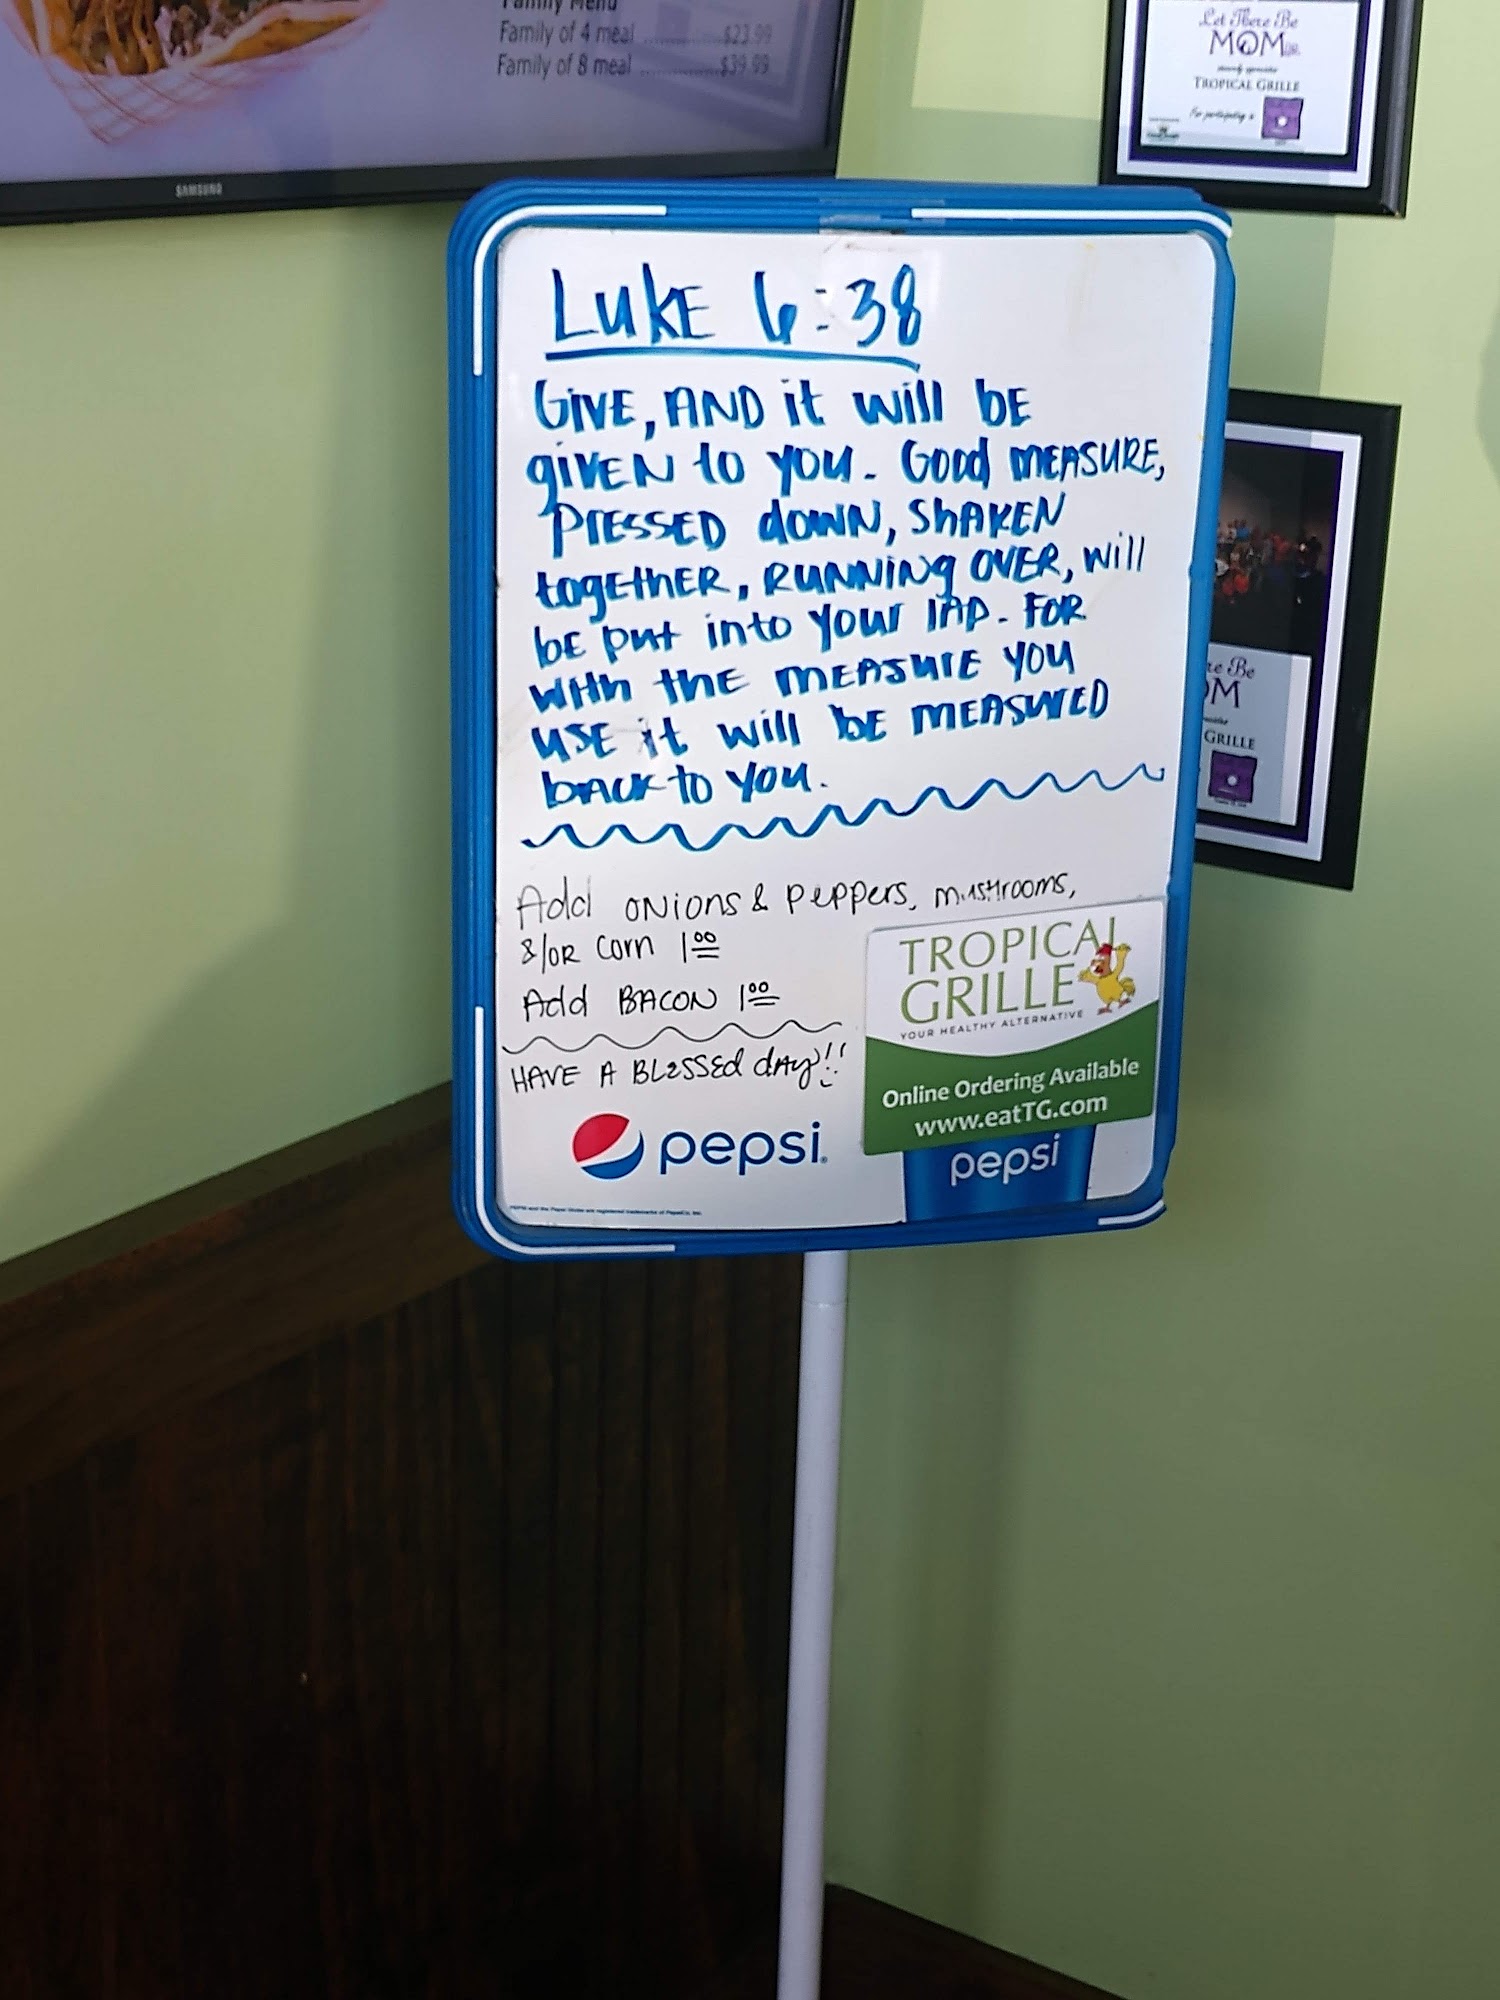 Family Menu
Family of 4 meal ............... $23.99
Family of 8 meal ............... $39.99
SAMSUNG
Let There Be
MOM
TROPICAL GRILLE
For participating in
LUKE 6:38
GIVE, AND it will bE
giVEN to you. Good MEASURE,
PRESSED dOWN, ShAKEN
togEthER, RUNNiNg OVER, will
bE put into your lAP. FOR
With thE MEASURE you
USE it will bE MEASURED
bACK to you.
Add ONions & peppers, mushrooms,
&/OR Corn 1 00
Add BACON 1 00
HAVE A BLESSED dAy!!
TROPICAL
GRILLE
YOUR HEALTHY ALTERNATIVE
Online Ordering Available
www.eatTG.com
pepsi
pepsi
re Be
OM
GRILLE